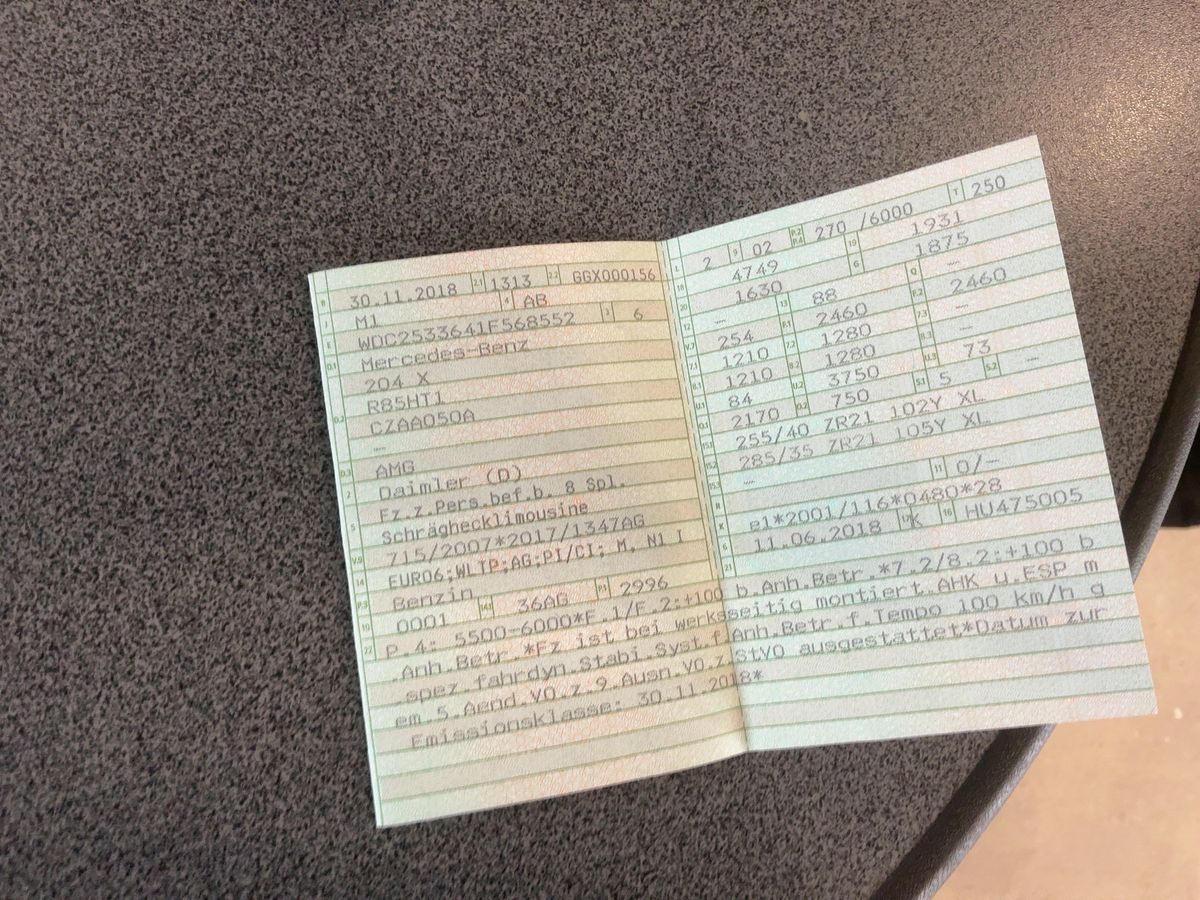 B 30.11.2018 2.1 1313 2.2 GGX000156
J M1 4 AB
E WDC2533641F568552 3 6
D.1 Mercedes-Benz
204 X
D.2 R85HT1
CZAA050A
—
D.3 AMG
2 Daimler (D)
5 Fz.z.Pers.bef.b. 8 Spl.
Schräghecklimousine
V.9 715/2007*2017/1347AG
14 EURO6;WLTP;AG;PI/CI; M, N1 I
P.3 Benzin
10 0001 14.1 36AG P.1 2996
L 2 9 02 P.2 P.4 270 /6000 T 250
18 4749 19 1931
20 1630 G 1875
12 — 13 88 Q —
V.7 254 F.1 2460 F.2 2460
7.1 1210 7.2 1280 7.3 —
8.1 1210 8.2 1280 8.3 —
U.1 84 U.2 3750 U.3 73
O.1 2170 O.2 750 S.1 5 S.2 —
15.1 255/40 ZR21 102Y XL
15.2 285/35 ZR21 105Y XL
15.3 —
R 11 0/—
K e1*2001/116*0480*28
6 11.06.2018 17 K 16 HU475005
21
22 P.4: 5500-6000*F.1/F.2:+100 b.Anh.Betr.*7.2/8.2:+100 b
.Anh.Betr.*Fz ist bei werksseitig montiert.AHK u.ESP m
.spez.fahrdyn.Stabi.Syst.f.Anh.Betr.f.Tempo 100 km/h g
em.5.Aend.VO.z.9.Ausn.VO.z.StVO ausgestattet*Datum zur
Emissionsklasse: 30.11.2018*